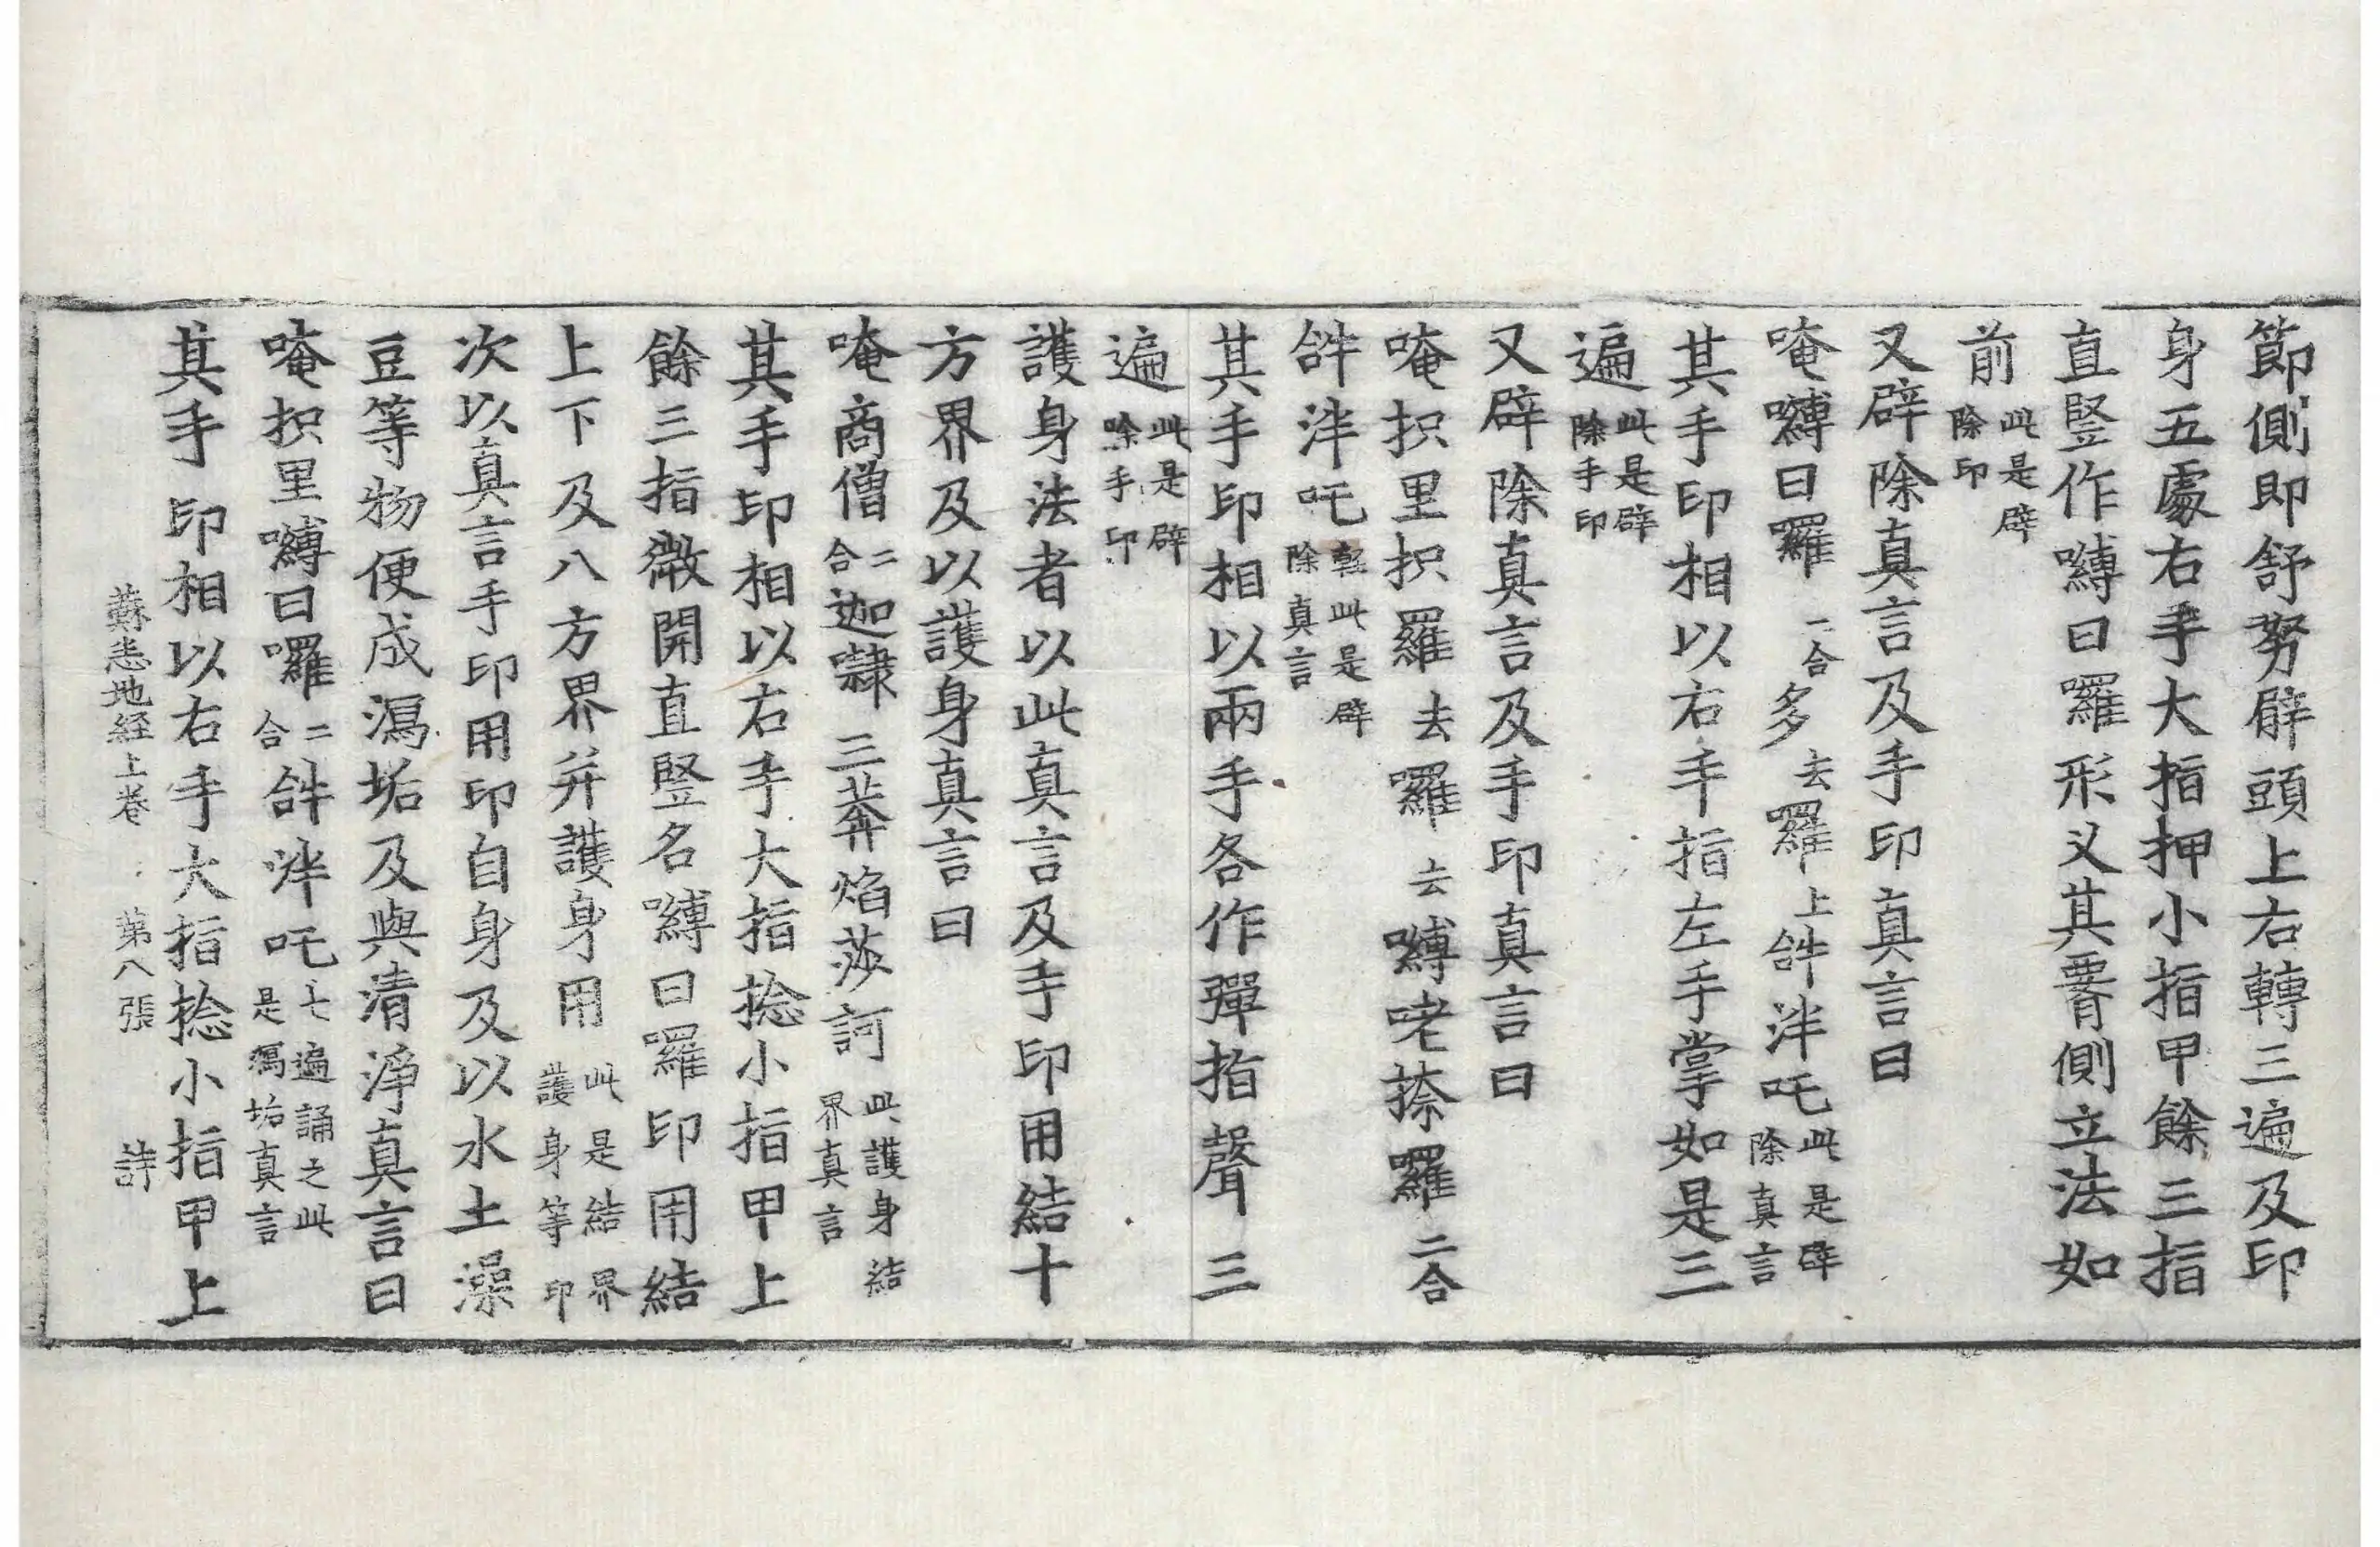 節側即舒努臂頭上右轉三遍及印
身五處右手大指押小指甲餘三指
直竪作嚩日囉形乂其臋側立法如
前此是辟除印
又辟除真言及手印真言曰
唵嚩日囉二合多去囉上𤙖泮吒此是辟除真言
其手印相以右手指左手掌如是三
遍此是辟除手印
又辟除真言及手印真言曰
唵抧里抧羅去囉去嚩咾捺囉二合
𤙖泮吒輕此是辟除真言
其手印相以兩手各作彈指聲三
遍此是辟除手印
護身法者以此真言及手印用結十
方界及以護身真言曰
唵商僧二合迦隸三莽焰莎訶此護身結界真言
其手印相以右手大指捻小指甲上
餘三指微開直竪名嚩日囉印用結
上下及八方界并護身用此是結界護身等印
次以真言手印用印自身及以水土澡
豆等物便成㵼垢及與清淨真言曰
唵抧里嚩日囉二合𤙖泮吒七遍誦之此是㵼垢真言
其手印相以右手大指捻小指甲上
蘇悉地経上卷 第八張 詩